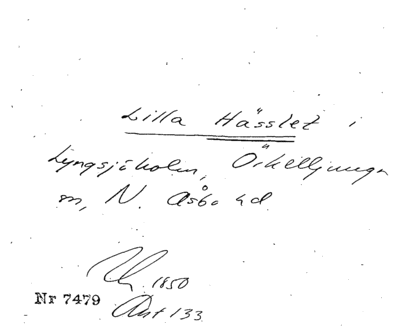 Lilla Hässlet i
Lyngsjöholm, Örkelljunga
sn, N. Åsbo hd
1850
Nr 7479
Ant 133